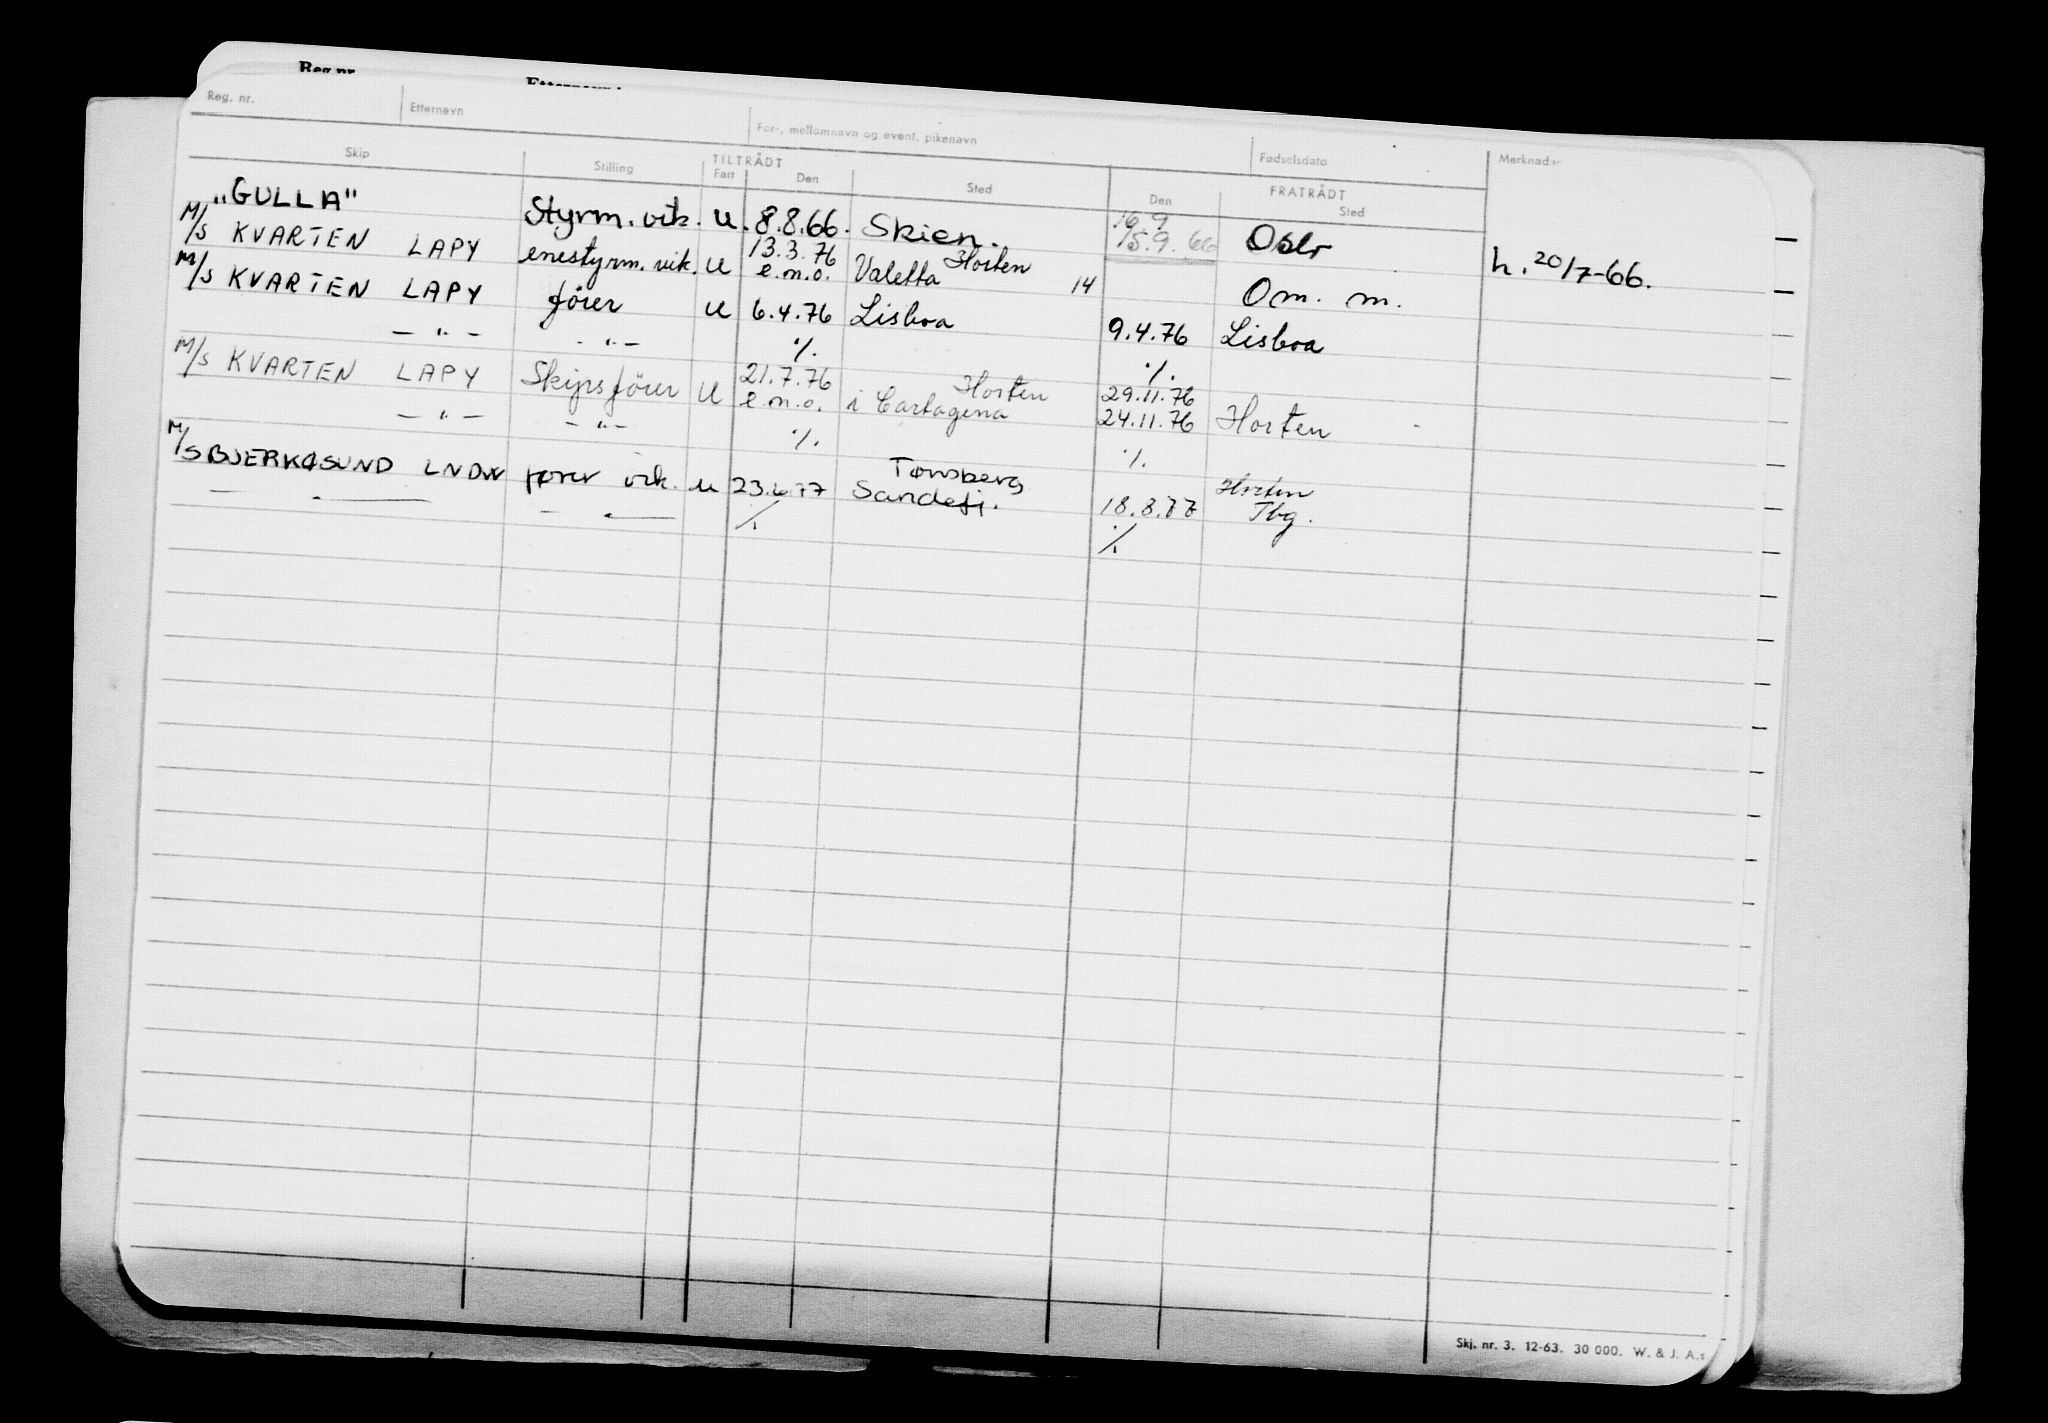 Reg. nr. Etternavn For-, mellomnavn og event. pikenavn Fødselsdato Merknader
Skip Stilling TILTRÅDT Fart Den Sted FRATRÅDT Den Sted
"GULLA" Styrm. vik. U. 8.8.66. Skien. 16.9 15.9.66 Oslo h. 20/7-66.
M/S KVARTEN LAPY enestyrm. vik. U 13.3.76 e.m.o. Valetta Horten 14 Om. m.
M/S KVARTEN LAPY förer U 6.4.76 Lisboa 9.4.76 Lisboa
— " — — " — ./. ./.
M/S KVARTEN LAPY Skipsförer U 21.7.76 e.m.o. i Cartagena Horten 29.11.76 24.11.76 Horten
— " — — " — ./. ./.
M/S BJERKØSUND LNDW fører vik. U 23.6.77 Tønsberg Sandefj. 18.8.77 Horten Tbg.
— " — — " — ./. ./.
Skj. nr. 3. 12-63. 30 000. W. & J. A.s